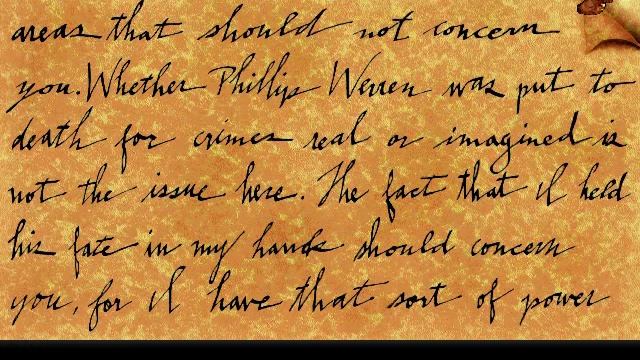 areas that should not concern
you. Whether Phillip Werren was put to
death for crimes real or imagined is
not the issue here. The fact that I held
his fate in my hands should concern
you, for I have that sort of power